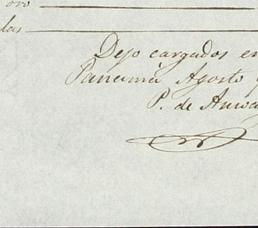 oro
das
Dejo cargados en
Panamá Agosto
P. de